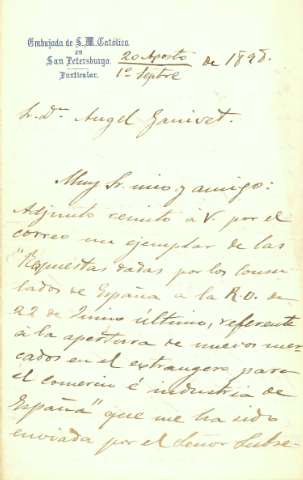 Embajada de S. M. Católica
en
San Petersburgo.
Particular.
20 Agosto
1º Septre
de 1898.
Sr. Dn. Angel Ganivet.
Muy Sr. mio y amigo:
Adjunto remito á V. por el
correo un ejemplar de las
"Respuestas dadas por los Consu-
lados de España a la R.O. de
22 de Junio último, referente
á la apertura de nuevos mer-
cados en el extrangero para
el comercio é industria de
España" que me ha sido
enviada por el Señor Subse-